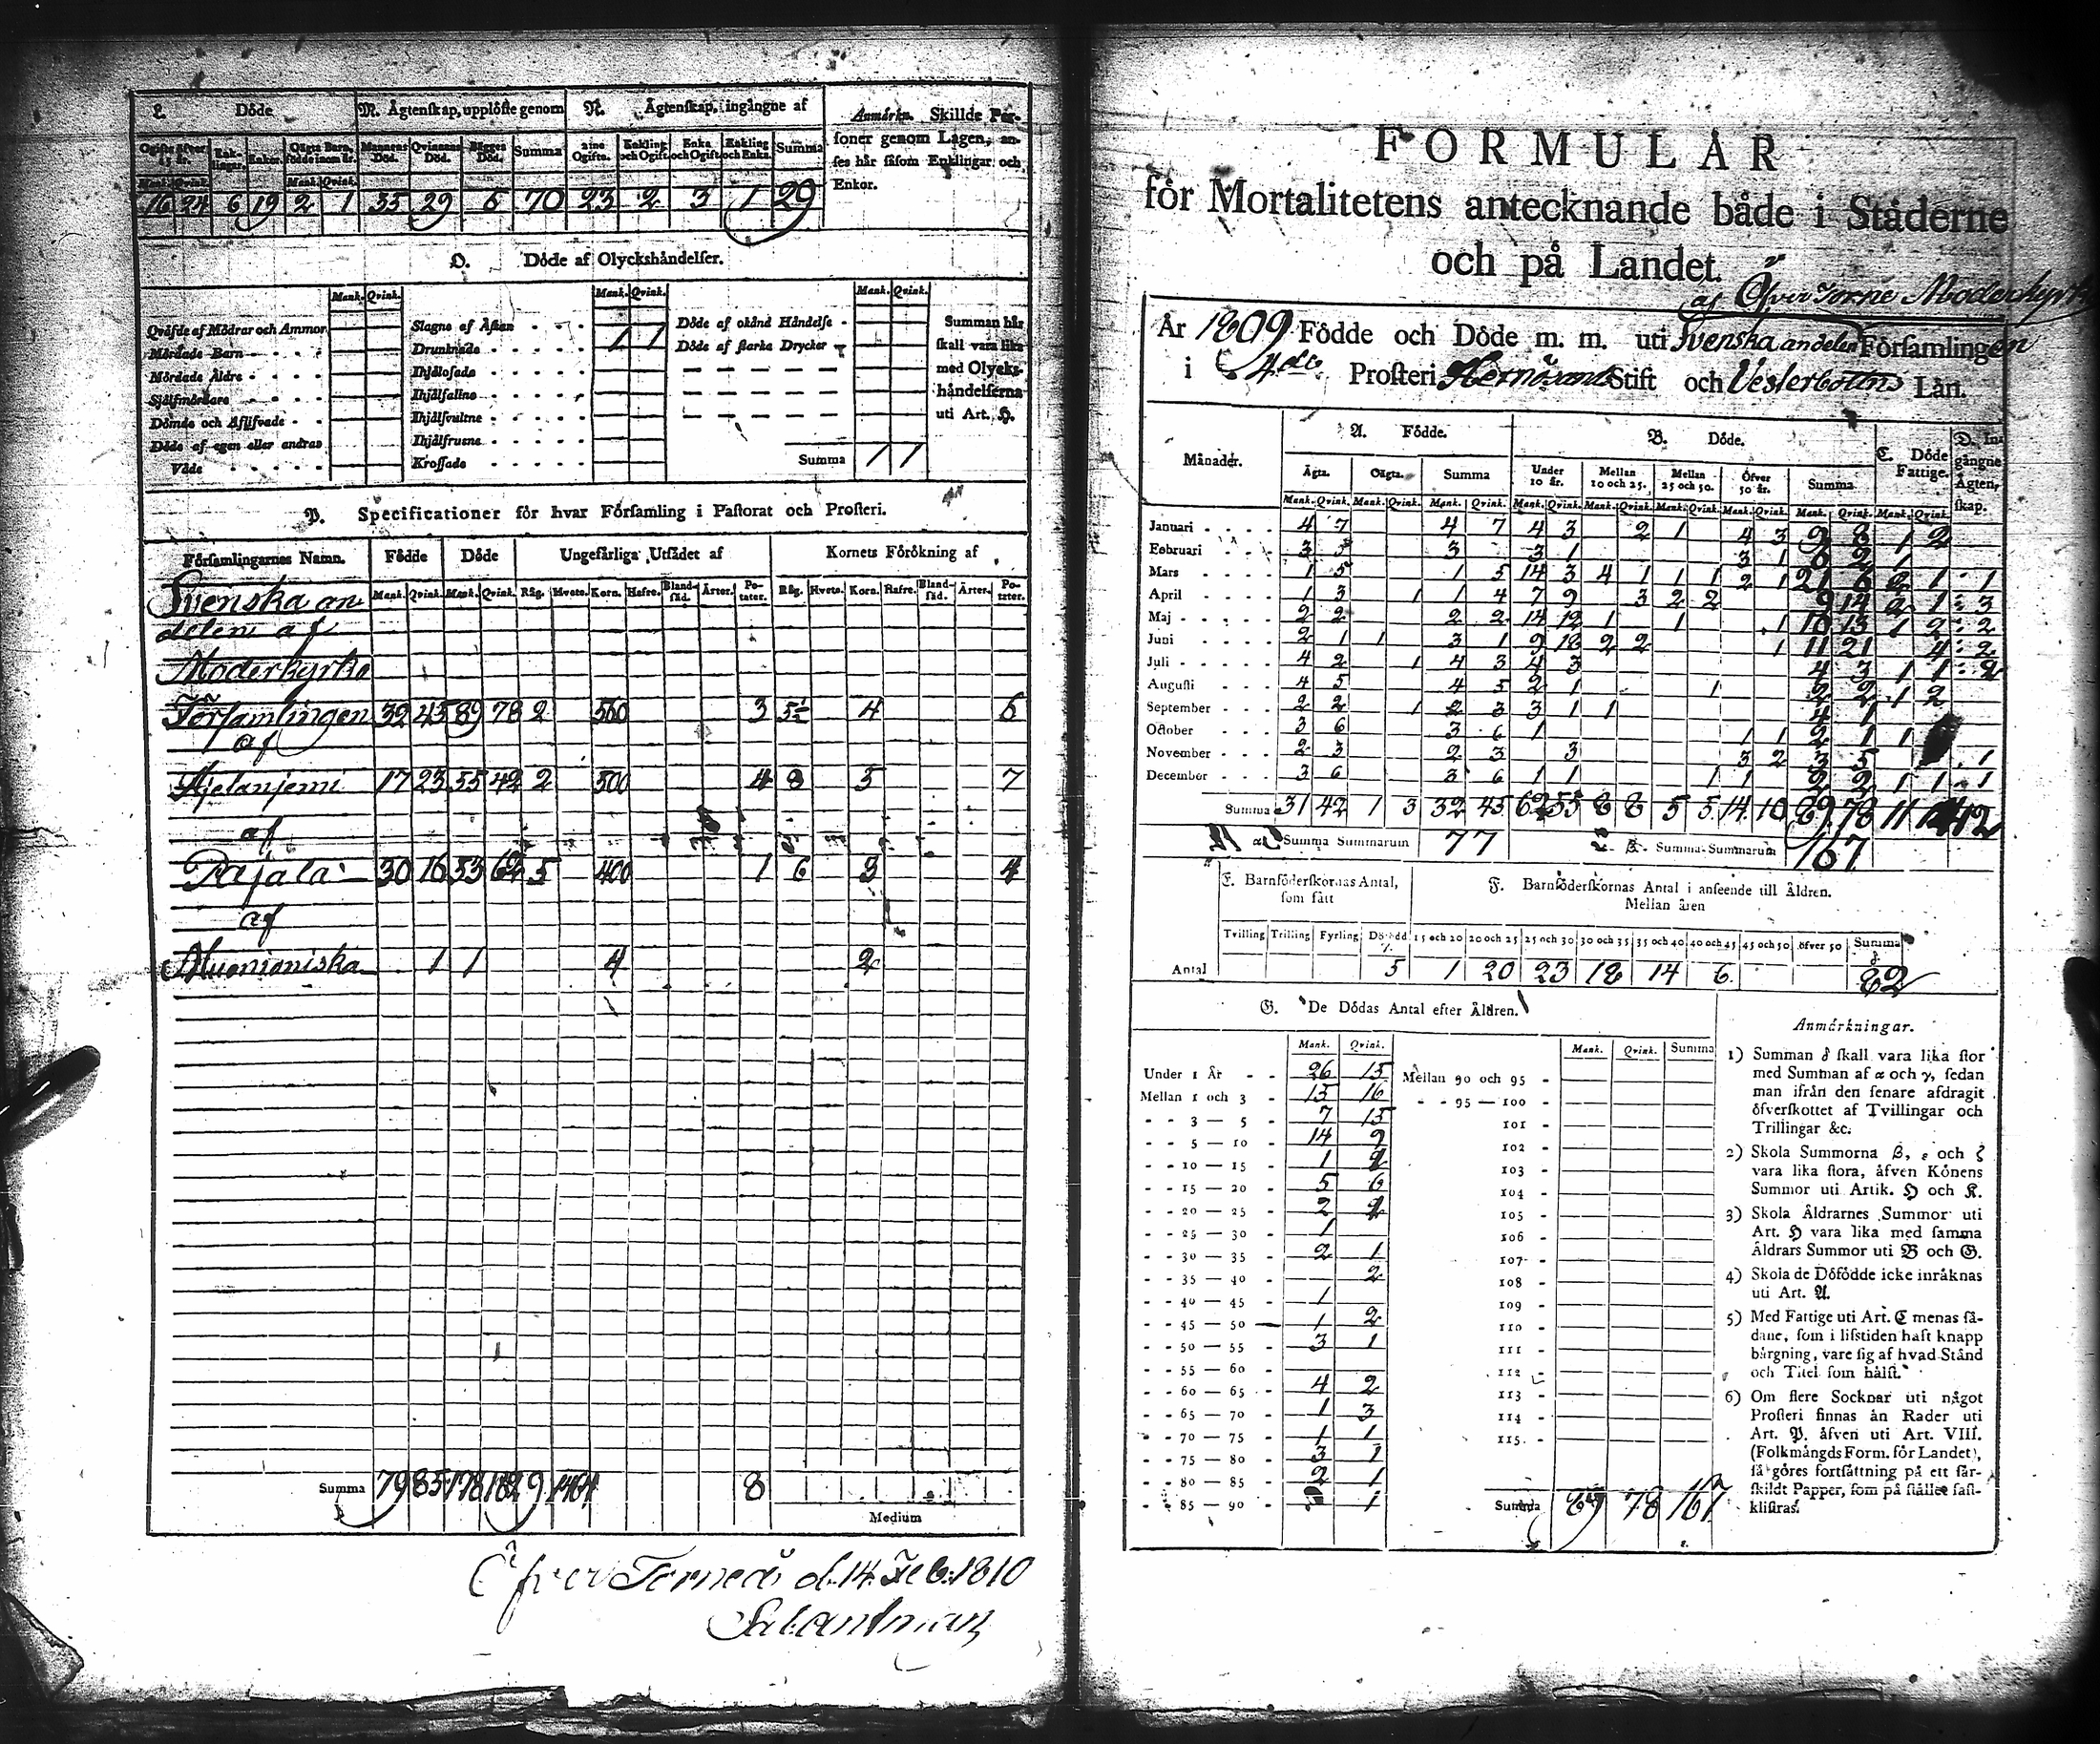 L. Döde
M. Ägtenskap, upplöste genom
N. Ägtenskap, ingångne af
Anmärkn. Skillde Per-
soner genom Lagen, an-
ses här såsom Enklingar och
Enkor.
Mannens Död. Qvinnans Död. Bägges Död. Summa Enkling och Ogift. Enka och Ogift. Enkling och Enka. Summa
16 24 6 19 2 1 35 29 6 70 23 2 3 1 29
O. Döde af Olyckshändelser.
Mank. Qvink. Mank. Qvink. Mank. Qvink.
Qväfde af Mödrar och Ammor
Mördade Barn
Mördade Äldre
Sjelfmördare
Dömde och Aflifvade
Döde af egen eller andras
Våde
Slagne af Åskan
Drunknade 1 1
Ihjälosade
Ihjälfallne
Ihjälsvultne
Ihjälfrusne
Krossade
Döde af okänd Händelse
Döde af starka Drycker
Summa 1 1
Summan här
skall vara lika
med Olycks-
händelserna
uti Art. H.
P. Specificationer för hvar Församling i Pastorat och Prosteri.
Församlingarnes Namn. Födde Döde Ungefärliga Utsädet af Kornets Förökning af
Mank. Qvink. Mank. Qvink. Råg. Hvete. Korn. Hafre. Bland-säd. Ärter. Po-tater. Råg. Hvete. Korn. Hafre. Bland-säd. Ärter. Po-tater.
Svenska an
delen af
Moderkyrko
Församlingen 32 45 89 78 2 560 3 5½ 4 6
af
Hjetanjemi 17 23 55 42 2 500 4 8 5 7
af
Pajala 30 16 33 62 5 400 1 6 3 4
af
Muonioniska 1 1 4 2
Summa 79 85 178 182 9 1464 8
Medium
Öfver Torneå d. 14 Feb. 1810
FORMULÄR
för Mortalitetens antecknande både i Städerne
och på Landet.
af Öfver Torne Moderkyrko
År 1809 Födde och Döde m. m. uti Svenska andelen Församlingen
i 4de Prosteri Hernösands Stift och Vesterbottns Län.
Månader.
A. Födde.
B. Döde.
C. Döde Fattige.
D. In-gångne Ägten-skap.
Ägta. Oägta. Summa Under 10 år. Mellan 10 och 25. Mellan 25 och 50. Öfver 50 år. Summa
Mank. Qvink. Mank. Qvink. Mank. Qvink. Mank. Qvink. Mank. Qvink. Mank. Qvink. Mank. Qvink. Mank. Qvink. Mank. Qvink.
Januari 4 7 4 7 4 3 2 1 4 3 9 8 1 2
Februari 3 3 3 1 3 1 6 2 1
Mars 1 5 1 5 14 3 4 1 1 1 2 1 21 6 2 1 1
April 1 3 1 1 4 7 9 3 2 2 9 14 2 1 3
Maj 2 2 2 2 14 12 1 1 1 16 13 1 2 2
Juni 2 1 1 3 1 9 18 2 2 1 11 21 4 2
Juli 4 2 1 4 3 4 3 4 3 1 1 2
Augusti 4 5 4 5 2 1 1 2 2 1 2
September 2 2 1 2 3 3 1 1 4 1
October 3 6 3 6 1 1 1 2 1 1
November 2 3 2 3 3 3 2 3 5 1
December 3 6 3 6 1 1 1 1 2 2 1 1 1
Summa 31 42 1 3 32 45 62 55 8 8 5 5 14 10 89 78 11 12
α. Summa Summarum 77 β. Summa Summarum 167
E. Barnföderskornas Antal,
som fått
F. Barnföderskornas Antal i anseende till Åldren.
Mellan åren
Tvilling Trilling Fyrling Dödfödd γ. 15 och 20 20 och 25 25 och 30 30 och 35 35 och 40 40 och 45 45 och 50 öfver 50 Summa δ
Antal 5 1 20 23 18 14 6 82
G. De Dödas Antal efter Åldren.
Mank. Qvink. Mank. Qvink. Summa
Under 1 År 26 15
Mellan 1 och 3 15 16
3 — 5 7 15
5 — 10 14 9
10 — 15 1
15 — 20 5 6
20 — 25 2
25 — 30 1
30 — 35 2 1
35 — 40 2
40 — 45 1
45 — 50 1 2
50 — 55 3 1
55 — 60
60 — 65 4 2
65 — 70 1 3
70 — 75 1 1
75 — 80 3 1
80 — 85 2 1
85 — 90 1
Mellan 90 och 95
95 — 100
101
102
103
104
105
106
107
108
109
110
111
112
113
114
115
Summa 89 78 167
Anmärkningar.
1) Summan δ skall vara lika stor
med Summan af α och γ, sedan
man ifrån den senare afdragit
öfverskottet af Tvillingar och
Trillingar &c.
2) Skola Summorna β, ε och ζ
vara lika stora, äfven Könens
Summor uti Artik. H och K.
3) Skola Åldrarnes Summor uti
Art. H vara lika med samma
Åldrars Summor uti B och G.
4) Skola de Döfödde icke inräknas
uti Art. A.
5) Med Fattige uti Art. C menas så-
dane, som i lifstiden haft knapp
bärgning, vare sig af hvad Stånd
och Titel som hälst.
6) Om flere Socknar uti något
Prosteri finnas än Rader uti
Art. P. äfven uti Art. VIII.
(Folkmängds Form. för Landet),
så göres fortsättning på ett sär-
skildt Papper, som på stället fast-
klistras.